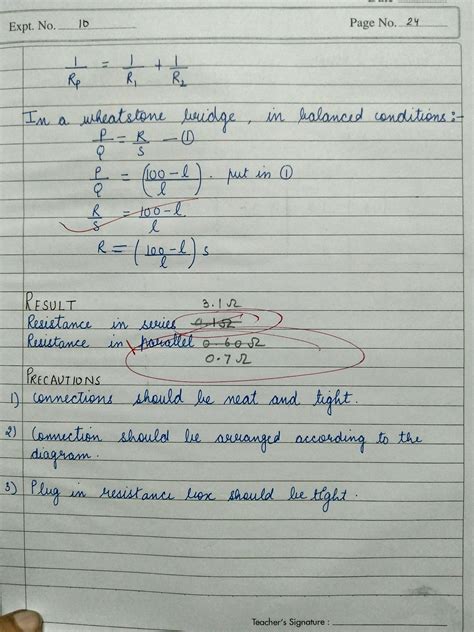 Expt. No. 10
Page No. 24
1/Rp = 1/R1 + 1/R2
In a wheatstone bridge, in balanced conditions:-
P/Q = R/S — ①
P/Q = (100-l/l). put in ①
R/S = 100-l/l
R = (100-l/l) s
RESULT
3.1Ω
Resistance in series 0.1Ω
Resistance in parallel 0.60Ω
0.7Ω
PRECAUTIONS
1) Connections should be neat and tight.
2) Connection should be arranged according to the
diagram.
3) Plug in resistance box should be tight.
Teacher's Signature :